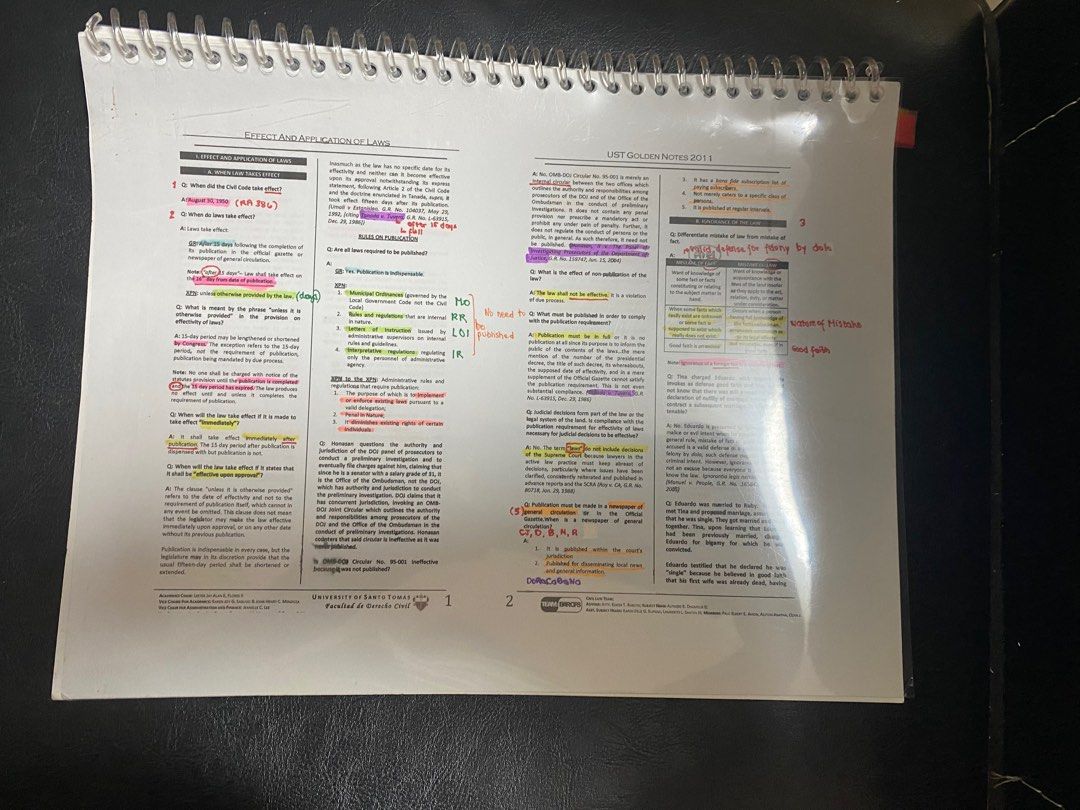 EFFECT AND APPLICATION OF LAWS
I. EFFECT AND APPLICATION OF LAWS
A. WHEN LAW TAKES EFFECT
1 Q: When did the Civil Code take effect?
A: August 30, 1950 (RA 386)
2 Q: When do laws take effect?
A: Laws take effect:
GR: After 15 days following the completion of
its publication in the official gazette or
newspaper of general circulation.
Note: "after 15 days" – Law shall take effect on
the 16th day from date of publication.
XPN: unless otherwise provided by the law. (days)
Q: What is meant by the phrase "unless it is
otherwise provided" in the provision on
effectivity of laws?
A: 15-day period may be lengthened or shortened
by Congress. The exception refers to the 15-day
period, not the requirement of publication,
publication being mandated by due process.
Note: No one shall be charged with notice of the
statutes provision until the publication is completed
and the 15 day period has expired. The law produces
no effect until and unless it completes the
requirement of publication.
Q: When will the law take effect if it is made to
take effect "immediately?
A: It shall take effect immediately after
publication. The 15 day period after publication is
dispensed with but publication is not.
Q: When will the law take effect if it states that
it shall be "effective upon approval"?
A: The clause "unless it is otherwise provided"
refers to the date of effectivity and not to the
requirement of publication itself, which cannot in
any event be omitted. This clause does not mean
that the legislator may make the law effective
immediately upon approval, or on any other date
without its previous publication.
Publication is indispensable in every case, but the
legislature may in its discretion provide that the
usual fifteen-day period shall be shortened or
extended.
Inasmuch as the law has no specific date for its
effectivity and neither can it become effective
upon its approval notwithstanding its express
statement, following Article 2 of the Civil Code
and the doctrine enunciated in Tanada, supra, it
took effect fifteen days after its publication.
(Umali v. Estanislao, G.R. No. 104037, May 29,
1992, [citing Tanada v. Tuvera, G.R. No. L-63915,
Dec. 29, 1986])
after 15 days
full
RULES ON PUBLICATION
Q: Are all laws required to be published?
A:
GR: Yes. Publication is indispensable.
XPN:
1. Municipal Ordinances (governed by the MO
Local Government Code not the Civil
Code)
2. Rules and regulations that are internal RR
in nature.
3. Letters of Instruction issued by LOI
administrative supervisors on internal
rules and guidelines.
4. Interpretative regulations regulating IR
only the personnel of administrative
agency.
No need to
be
published
XPN to the XPN: Administrative rules and
regulations that require publication:
1. The purpose of which is to implement
or enforce existing laws pursuant to a
valid delegation;
2. Penal in Nature;
3. It diminishes existing rights of certain
individuals
Q: Honasan questions the authority and
jurisdiction of the DOJ panel of prosecutors to
conduct a preliminary investigation and to
eventually file charges against him, claiming that
since he is a senator with a salary grade of 31, it
is the Office of the Ombudsman, not the DOJ,
which has authority and jurisdiction to conduct
the preliminary investigation. DOJ claims that it
has concurrent jurisdiction, invoking an OMB-
DOJ Joint Circular which outlines the authority
and responsibilities among prosecutors of the
DOJ and the Office of the Ombudsman in the
conduct of preliminary investigations. Honasan
counters that said circular is ineffective as it was
never published.
Is OMB-DOJ Circular No. 95-001 ineffective
because it was not published?
UNIVERSITY OF SANTO TOMAS
Facultad de Derecho Civil
1
UST GOLDEN NOTES 2011
A: No. OMB-DOJ Circular No. 95-001 is merely an
internal circular between the two offices which
outlines the authority and responsibilities among
prosecutors of the DOJ and of the Office of the
Ombudsman in the conduct of preliminary
investigation. It does not contain any penal
provision nor prescribe a mandatory act or
prohibit any under pain of penalty. Further, it
does not regulate the conduct of persons or the
public, in general. As such therefore, it need not
be published. (Honasan, II v. The Panel of
Investigating Prosecutors of the Department of
Justice, G.R. No. 159747, Jun. 15, 2004)
Q: What is the effect of non-publication of the
law?
A: The law shall not be effective. It is a violation
of due process.
Q: What must be published in order to comply
with the publication requirement?
A: Publication must be in full or it is no
publication at all since its purpose is to inform the
public of the contents of the laws. The mere
mention of the number of the presidential
decree, the title of such decree, its whereabouts,
the supposed date of effectivity, and in a mere
supplement of the Official Gazette cannot satisfy
the publication requirement. This is not even
substantial compliance. G.R.
No. L-63915, Dec. 29, 1986)
Q: Judicial decisions form part of the law or the
legal system of the land. Is compliance with the
publication requirement for effectivity of laws
necessary for judicial decisions to be effective?
A: No. The term "laws" do not include decisions
of the Supreme Court because lawyers in the
active law practice must keep abreast of
decisions, particularly where issues have been
clarified, consistently reiterated and published in
advance reports and the SCRA (Roy v. CA, G.R. No.
80718, Jun. 29, 1988)
Q: Publication must be made in a newspaper of
(5) general circulation or in the Official
Gazette. When is a newspaper of general
circulation?
CJ, D, B, N, R
A:
1. It is published within the court's
jurisdiction
2. Published for disseminating local news
and general information.
3. It has a bona fide subscription list of
paying subscribers.
4. Not merely caters to a specific class of
persons.
5. It is published at regular intervals.
B. IGNORANCE OF THE LAW
3
Q: Differentiate mistake of law from mistake of
fact.
defense for felony by dolo
A:
MISTAKE OF FACT MISTAKE OF LAW
Want of knowledge of
some fact or facts
constituting or relating
to the subject matter in
hand.
Want of knowledge or
acquaintance with the
laws of the land insofar
as they apply to the act,
relation, duty, or matter
under consideration.
When some facts which
really exist are unknown
or some fact is
supposed to exist which
really does not exist.
Occurs when a person
Nature of Mistake
Good faith is an excuse
Good faith
Note: Ignorance of a foreign law
Q: Tina charged Eduardo
Q: Eduardo was married to Ruby.
met Tina and proposed marriage,
that he was single. They got married and
together. Tina, upon learning that
had been previously married,
Eduardo for bigamy for which he was
convicted.
Eduardo testified that he declared he was
"single" because he believed in good faith
that his first wife was already dead, having
2
TEAM BAROPS
CIVIL LAW TEAM: